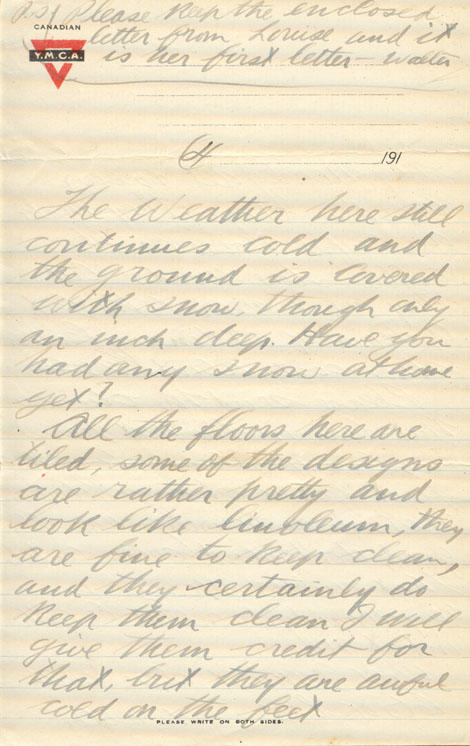 P.S. Please keep the enclosed
letter from Louise and it
is her first letter – Walter
CANADIAN
Y.M.C.A.
4 191
The Weather here still
continues cold and
the ground is covered
with snow, though only
an inch deep. Have you
had any snow at home
yet?
All the floors here are
tiled, some of the designs
are rather pretty and
look like linoleum, they
are fine to keep clean,
and they certainly do
keep them clean I will
give them credit for
that, but they are awful
cold on the feet
PLEASE WRITE ON BOTH SIDES.